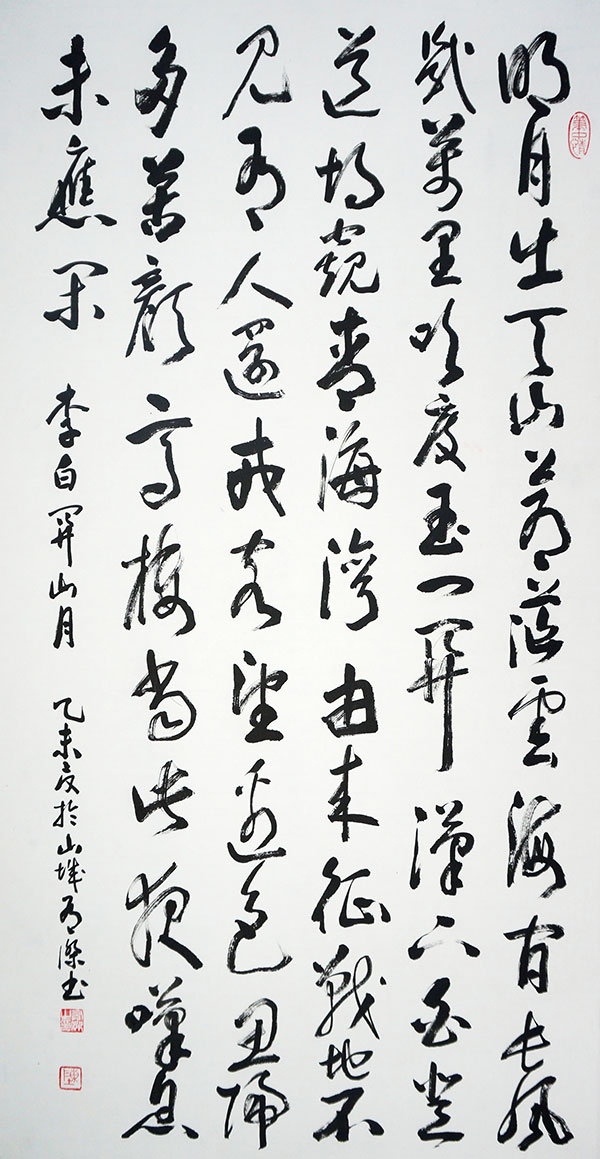 明月出天山蒼茫雲海間長風
幾萬里吹度玉門關漢下白登
道胡窺青海灣由來征戰地不
見有人還戍客望邊色思歸
多苦顏高樓當此夜嘆息
未應閑 李白關山月 乙未夏於山城有傑书